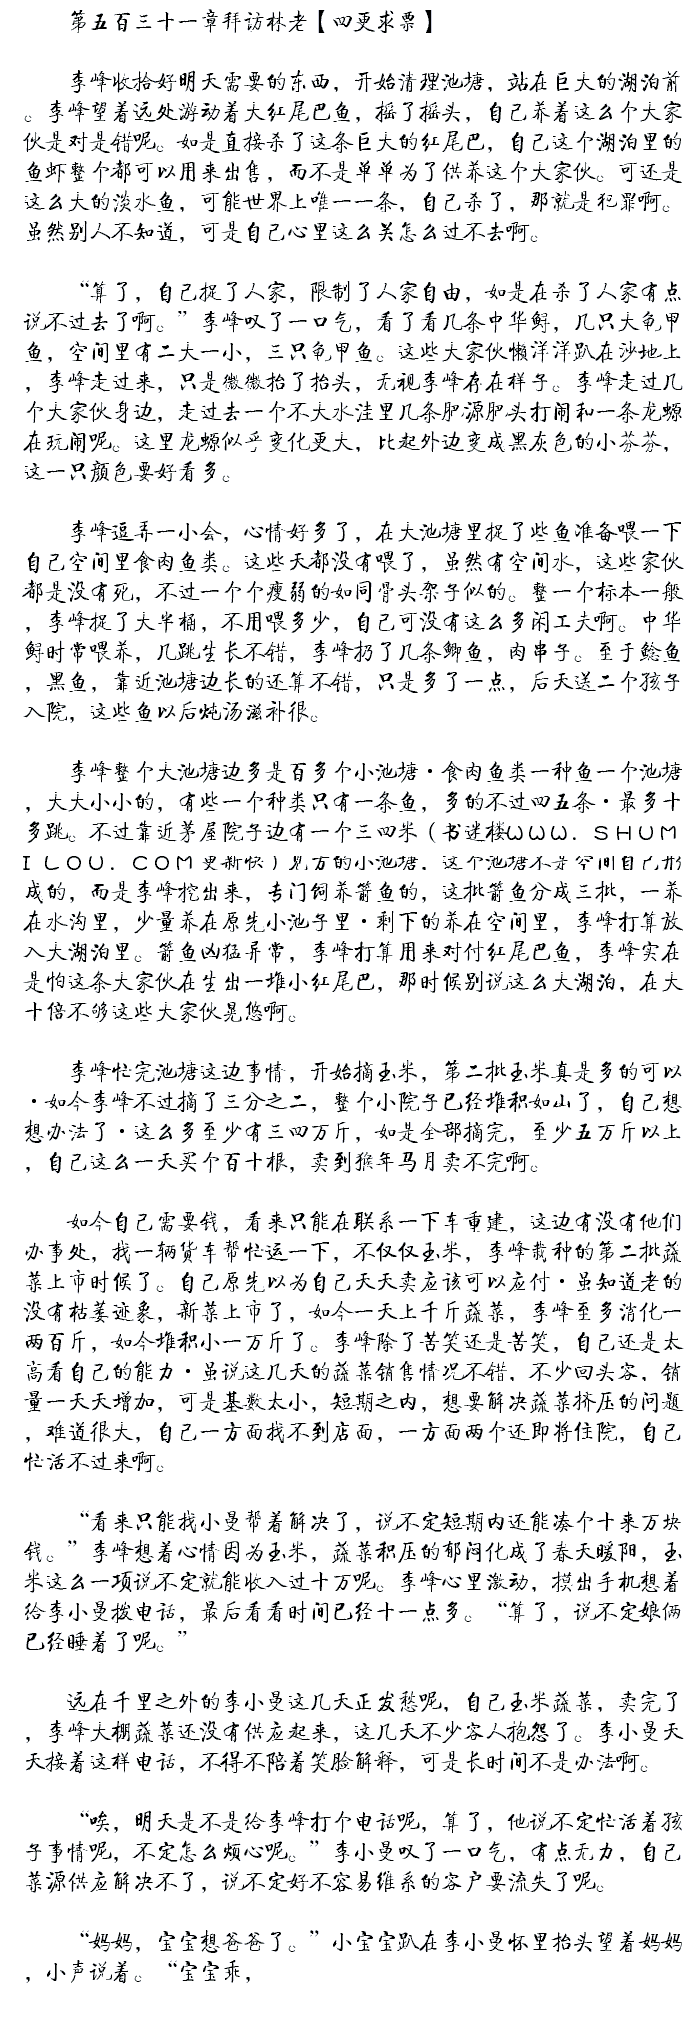 第五百三十一章拜访林老【四更求票】
李峰收拾好明天需要的东西，开始清理池塘，站在巨大的湖泊前
。李峰望着远处游动着大红尾巴鱼，摇了摇头，自己养着这么个大家
伙是对是错呢。如是直接杀了这条巨大的红尾巴，自己这个湖泊里的
鱼虾整个都可以用来出售，而不是单单为了供养这个大家伙。可还是
这么大的淡水鱼，可能世界上唯一一条，自己杀了，那就是犯罪啊。
虽然别人不知道，可是自己心里这么关怎么过不去啊。
“算了，自己捉了人家，限制了人家自由，如是在杀了人家有点
说不过去了啊。”李峰叹了一口气，看了看几条中华鲟，几只大龟甲
鱼，空间里有二大一小，三只龟甲鱼。这些大家伙懒洋洋趴在沙地上
，李峰走过来，只是微微抬了抬头，无视李峰存在样子。李峰走过几
个大家伙身边，走过去一个不大水洼里几条肥源肥头打闹和一条龙螈
在玩闹呢。这里龙螈似乎变化更大，比起外边变成黑灰色的小芬芬，
这一只颜色要好看多。
李峰逗弄一小会，心情好多了，在大池塘里捉了些鱼准备喂一下
自己空间里食肉鱼类。这些天都没有喂了，虽然有空间水，这些家伙
都是没有死，不过一个个瘦弱的如同骨头架子似的。整一个标本一般
，李峰捉了大半桶，不用喂多少，自己可没有这么多闲工夫啊。中华
鲟时常喂养，几跳生长不错，李峰扔了几条鲫鱼，肉串子。至于鲶鱼
，黑鱼，靠近池塘边长的还算不错，只是多了一点，后天送二个孩子
入院，这些鱼以后炖汤滋补很。
李峰整个大池塘边多是百多个小池塘·食肉鱼类一种鱼一个池塘
，大大小小的，有些一个种类只有一条鱼，多的不过四五条·最多十
多跳。不过靠近茅屋院子边有一个三四米（书迷楼ＷＷＷ．ＳＨＵＭ
ＩＬＯＵ．ＣＯＭ更新快）见方的小池塘，这个池塘不是空间自己形
成的，而是李峰挖出来，专门饲养箭鱼的，这批箭鱼分成三批，一养
在水沟里，少量养在原先小池子里·剩下的养在空间里，李峰打算放
入大湖泊里。箭鱼凶猛异常，李峰打算用来对付红尾巴鱼，李峰实在
是怕这条大家伙在生出一堆小红尾巴，那时候别说这么大湖泊，在大
十倍不够这些大家伙晃悠啊。
李峰忙完池塘这边事情，开始摘玉米，第二批玉米真是多的可以
·如今李峰不过摘了三分之二，整个小院子已经堆积如山了，自己想
想办法了·这么多至少有三四万斤，如是全部摘完，至少五万斤以上
，自己这么一天买个百十根，卖到猴年马月卖不完啊。
如今自己需要钱，看来只能在联系一下车重建，这边有没有他们
办事处，找一辆货车帮忙运一下，不仅仅玉米，李峰栽种的第二批蔬
菜上市时候了。自己原先以为自己天天卖应该可以应付·虽知道老的
没有枯萎迹象，新菜上市了，如今一天上千斤蔬菜，李峰至多消化一
两百斤，如今堆积小一万斤了。李峰除了苦笑还是苦笑，自己还是太
高看自己的能力·虽说这几天的蔬菜销售情况不错，不少回头客，销
量一天天增加，可是基数太小，短期之内，想要解决蔬菜挤压的问题
，难道很大，自己一方面找不到店面，一方面两个还即将住院，自己
忙活不过来啊。
“看来只能找小曼帮着解决了，说不定短期内还能凑个十来万块
钱。”李峰想着心情因为玉米，蔬菜积压的郁闷化成了春天暖阳，玉
米这么一项说不定就能收入过十万呢。李峰心里激动，摸出手机想着
给李小曼拨电话，最后看看时间已经十一点多。“算了，说不定娘俩
已经睡着了呢。”
远在千里之外的李小曼这几天正发愁呢，自己玉米蔬菜，卖完了
，李峰大棚蔬菜还没有供应起来，这几天不少客人抱怨了。李小曼天
天接着这样电话，不得不陪着笑脸解释，可是长时间不是办法啊。
“唉，明天是不是给李峰打个电话呢，算了，他说不定忙活着孩
子事情呢，不定怎么烦心呢。”李小曼叹了一口气，有点无力，自己
菜源供应解决不了，说不定好不容易维系的客户要流失了呢。
“妈妈，宝宝想爸爸了。”小宝宝趴在李小曼怀里抬头望着妈妈
，小声说着。“宝宝乖，